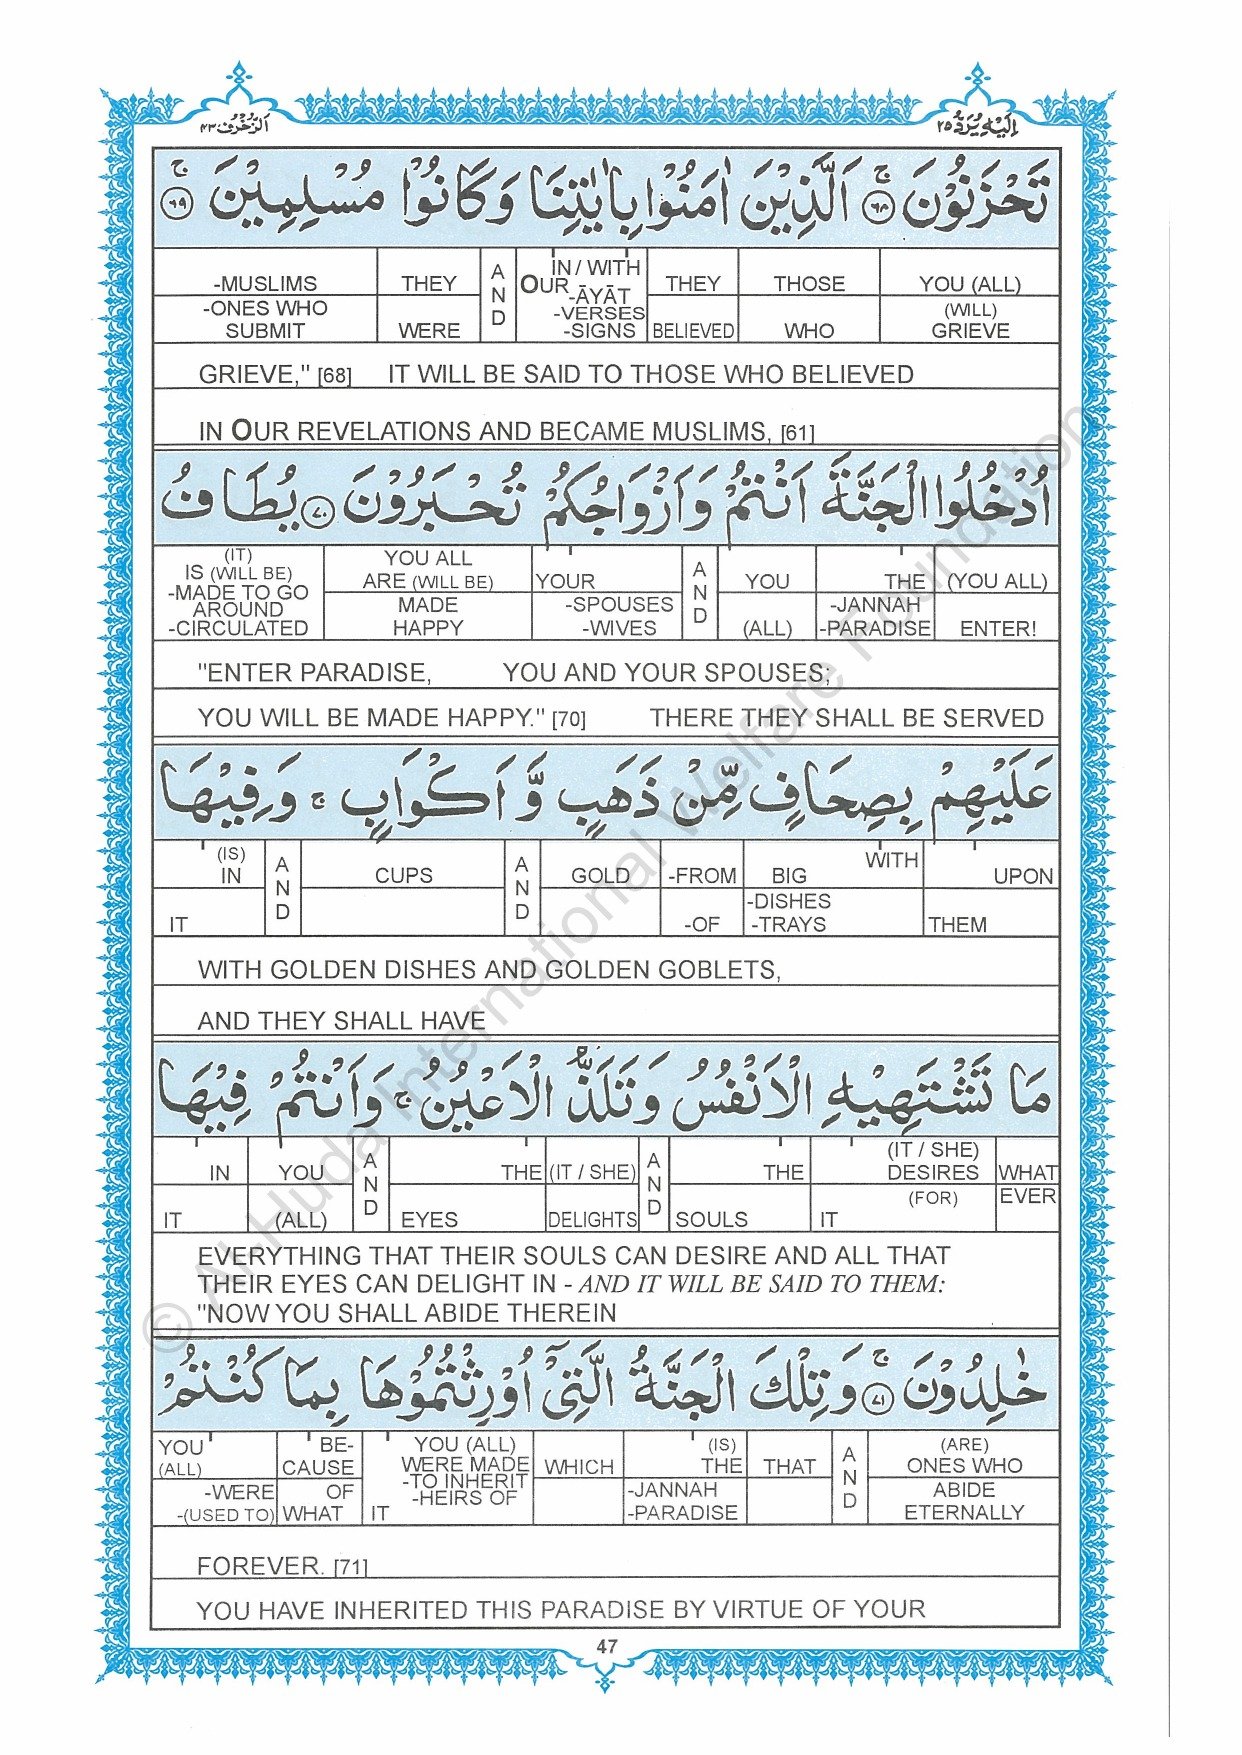 اَلزُّخْرُف ٤٣ اِلَيْهِ يُرَدُّ ٢٥
تَحْزَنُوْنَ ۚ ﴿٦٨﴾ اَلَّذِيْنَ اٰمَنُوْا بِاٰيٰتِنَا وَكَانُوْا مُسْلِمِيْنَ ۚ ﴿٦٩﴾
-MUSLIMS THEY AND IN / WITH OUR THEY THOSE YOU (ALL)
-ĀYĀT
-ONES WHO -VERSES (WILL)
SUBMIT WERE -SIGNS BELIEVED WHO GRIEVE
GRIEVE," [68] IT WILL BE SAID TO THOSE WHO BELIEVED
IN OUR REVELATIONS AND BECAME MUSLIMS, [61]
اُدْخُلُوا الْجَنَّةَ اَنْتُمْ وَاَزْوَاجُكُمْ تُحْبَرُوْنَ ﴿٧٠﴾ يُطَافُ
(IT) YOU ALL
IS (WILL BE) ARE (WILL BE) YOUR AND YOU THE (YOU ALL)
-MADE TO GO
AROUND MADE -SPOUSES -JANNAH
-CIRCULATED HAPPY -WIVES (ALL) -PARADISE ENTER!
"ENTER PARADISE, YOU AND YOUR SPOUSES;
YOU WILL BE MADE HAPPY." [70] THERE THEY SHALL BE SERVED
عَلَيْهِمْ بِصِحَافٍ مِّنْ ذَهَبٍ وَّ اَكْوَابٍ ۚ وَفِيْهَا
(IS) WITH
IN AND CUPS AND GOLD -FROM BIG UPON
-DISHES
IT -OF -TRAYS THEM
WITH GOLDEN DISHES AND GOLDEN GOBLETS,
AND THEY SHALL HAVE
مَا تَشْتَهِيْهِ الْاَنْفُسُ وَتَلَذُّ الْاَعْيُنُ ۚ وَاَنْتُمْ فِيْهَا
(IT / SHE)
IN YOU AND THE (IT / SHE) AND THE DESIRES WHAT
(FOR) EVER
IT (ALL) EYES DELIGHTS SOULS IT
EVERYTHING THAT THEIR SOULS CAN DESIRE AND ALL THAT
THEIR EYES CAN DELIGHT IN - AND IT WILL BE SAID TO THEM:
"NOW YOU SHALL ABIDE THEREIN
خٰلِدُوْنَ ۚ ﴿٧١﴾ وَتِلْكَ الْجَنَّةُ الَّتِيْٓ اُوْرِثْتُمُوْهَا بِمَا كُنْتُمْ
YOU BE- YOU (ALL) (IS) (ARE)
(ALL) CAUSE WERE MADE WHICH THE THAT AND ONES WHO
-TO INHERIT
-WERE OF -HEIRS OF -JANNAH ABIDE
-(USED TO) WHAT IT -PARADISE ETERNALLY
FOREVER. [71]
YOU HAVE INHERITED THIS PARADISE BY VIRTUE OF YOUR
47
© Al-Huda International Welfare Foundation